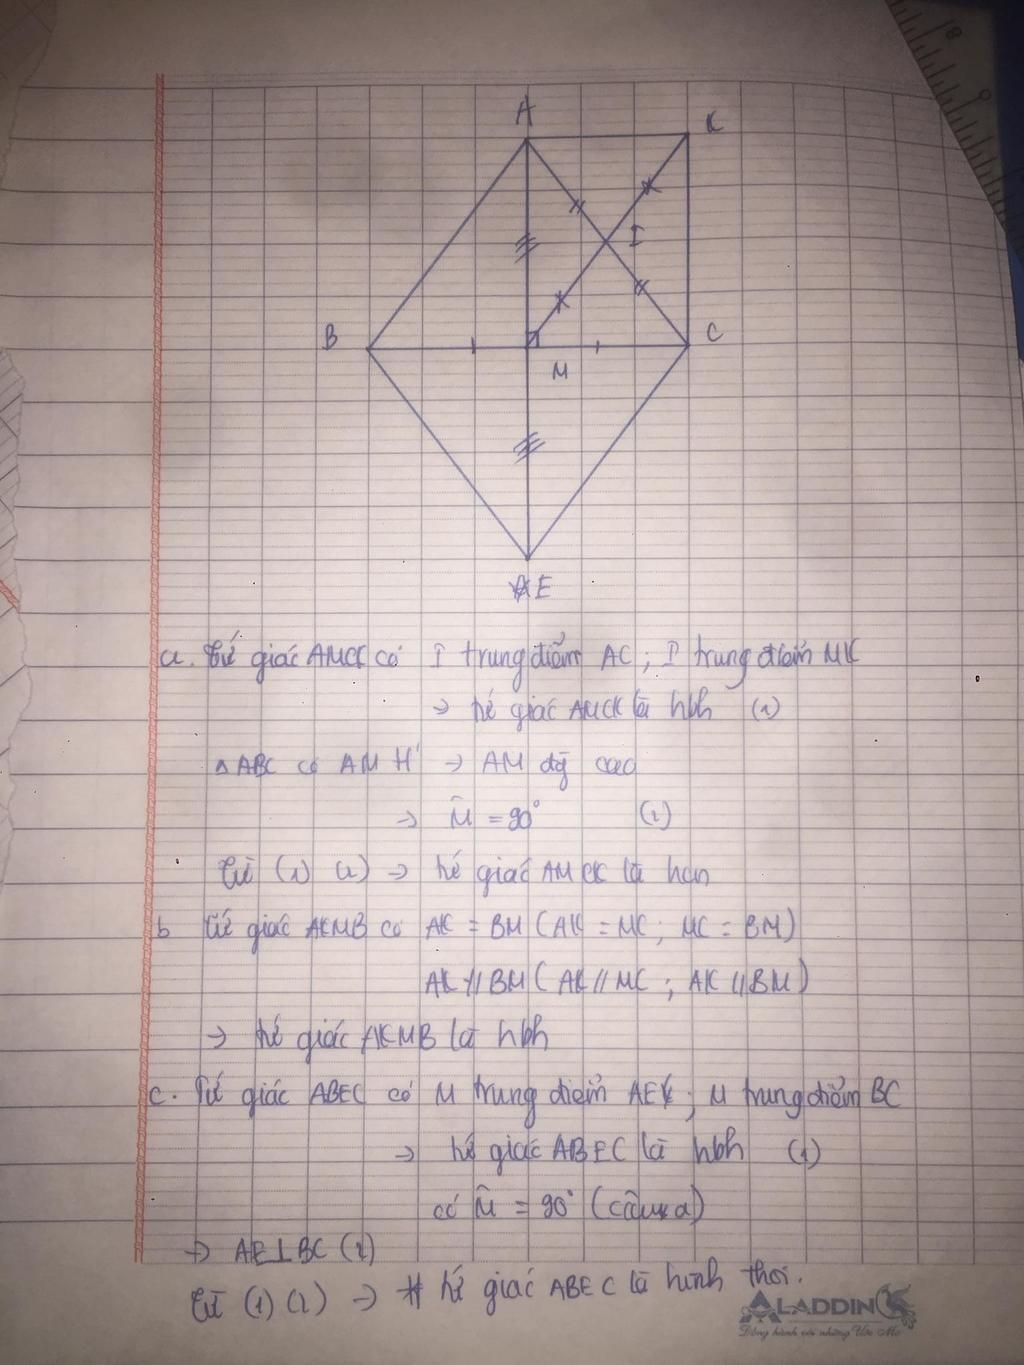 A
K
I
B
C
M
E
a. Tứ giác AMCK có I trung điểm AC ; I trung điểm MK
→ tứ giác AMCK là hbh (1)
△ABC có AM tt → AM đg cao
→ M̂ = 90° (2)
Từ (1) (2) → tứ giác AMCK là hcn
b Tứ giác AKMB có AK = BM ( AK = MC ; MC = BM )
AK // BM ( AK // MC ; AK // BM )
→ tứ giác AKMB là hbh
c. Tứ giác ABEC có M trung điểm AE ; M trung điểm BC
→ tứ giác ABEC là hbh (1)
có M̂ = 90° (câu a)
→ AE ⊥ BC (2)
Từ (1) (2) → tứ giác ABEC là hình thoi.
ALADDIN
Đồng hành với những Ước Mơ